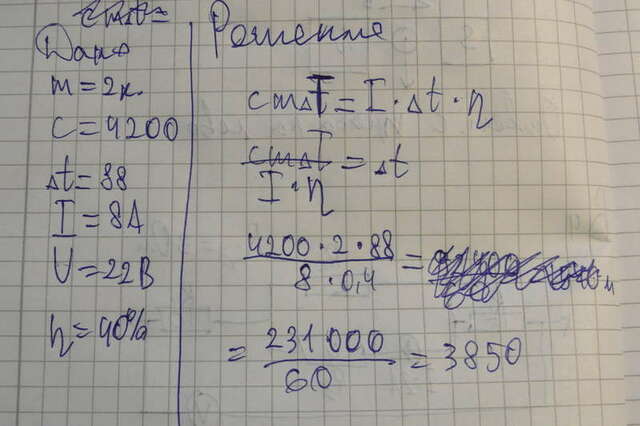 Дано
m = 2к.
c = 4200
Δt = 88
I = 8А
U = 22В
η = 40%
Решение
cmΔT = I · Δt · η
cmΔT / I · η = Δt
4200 · 2 · 88 / 8 · 0,4 =
= 231 000 / 60 = 3850